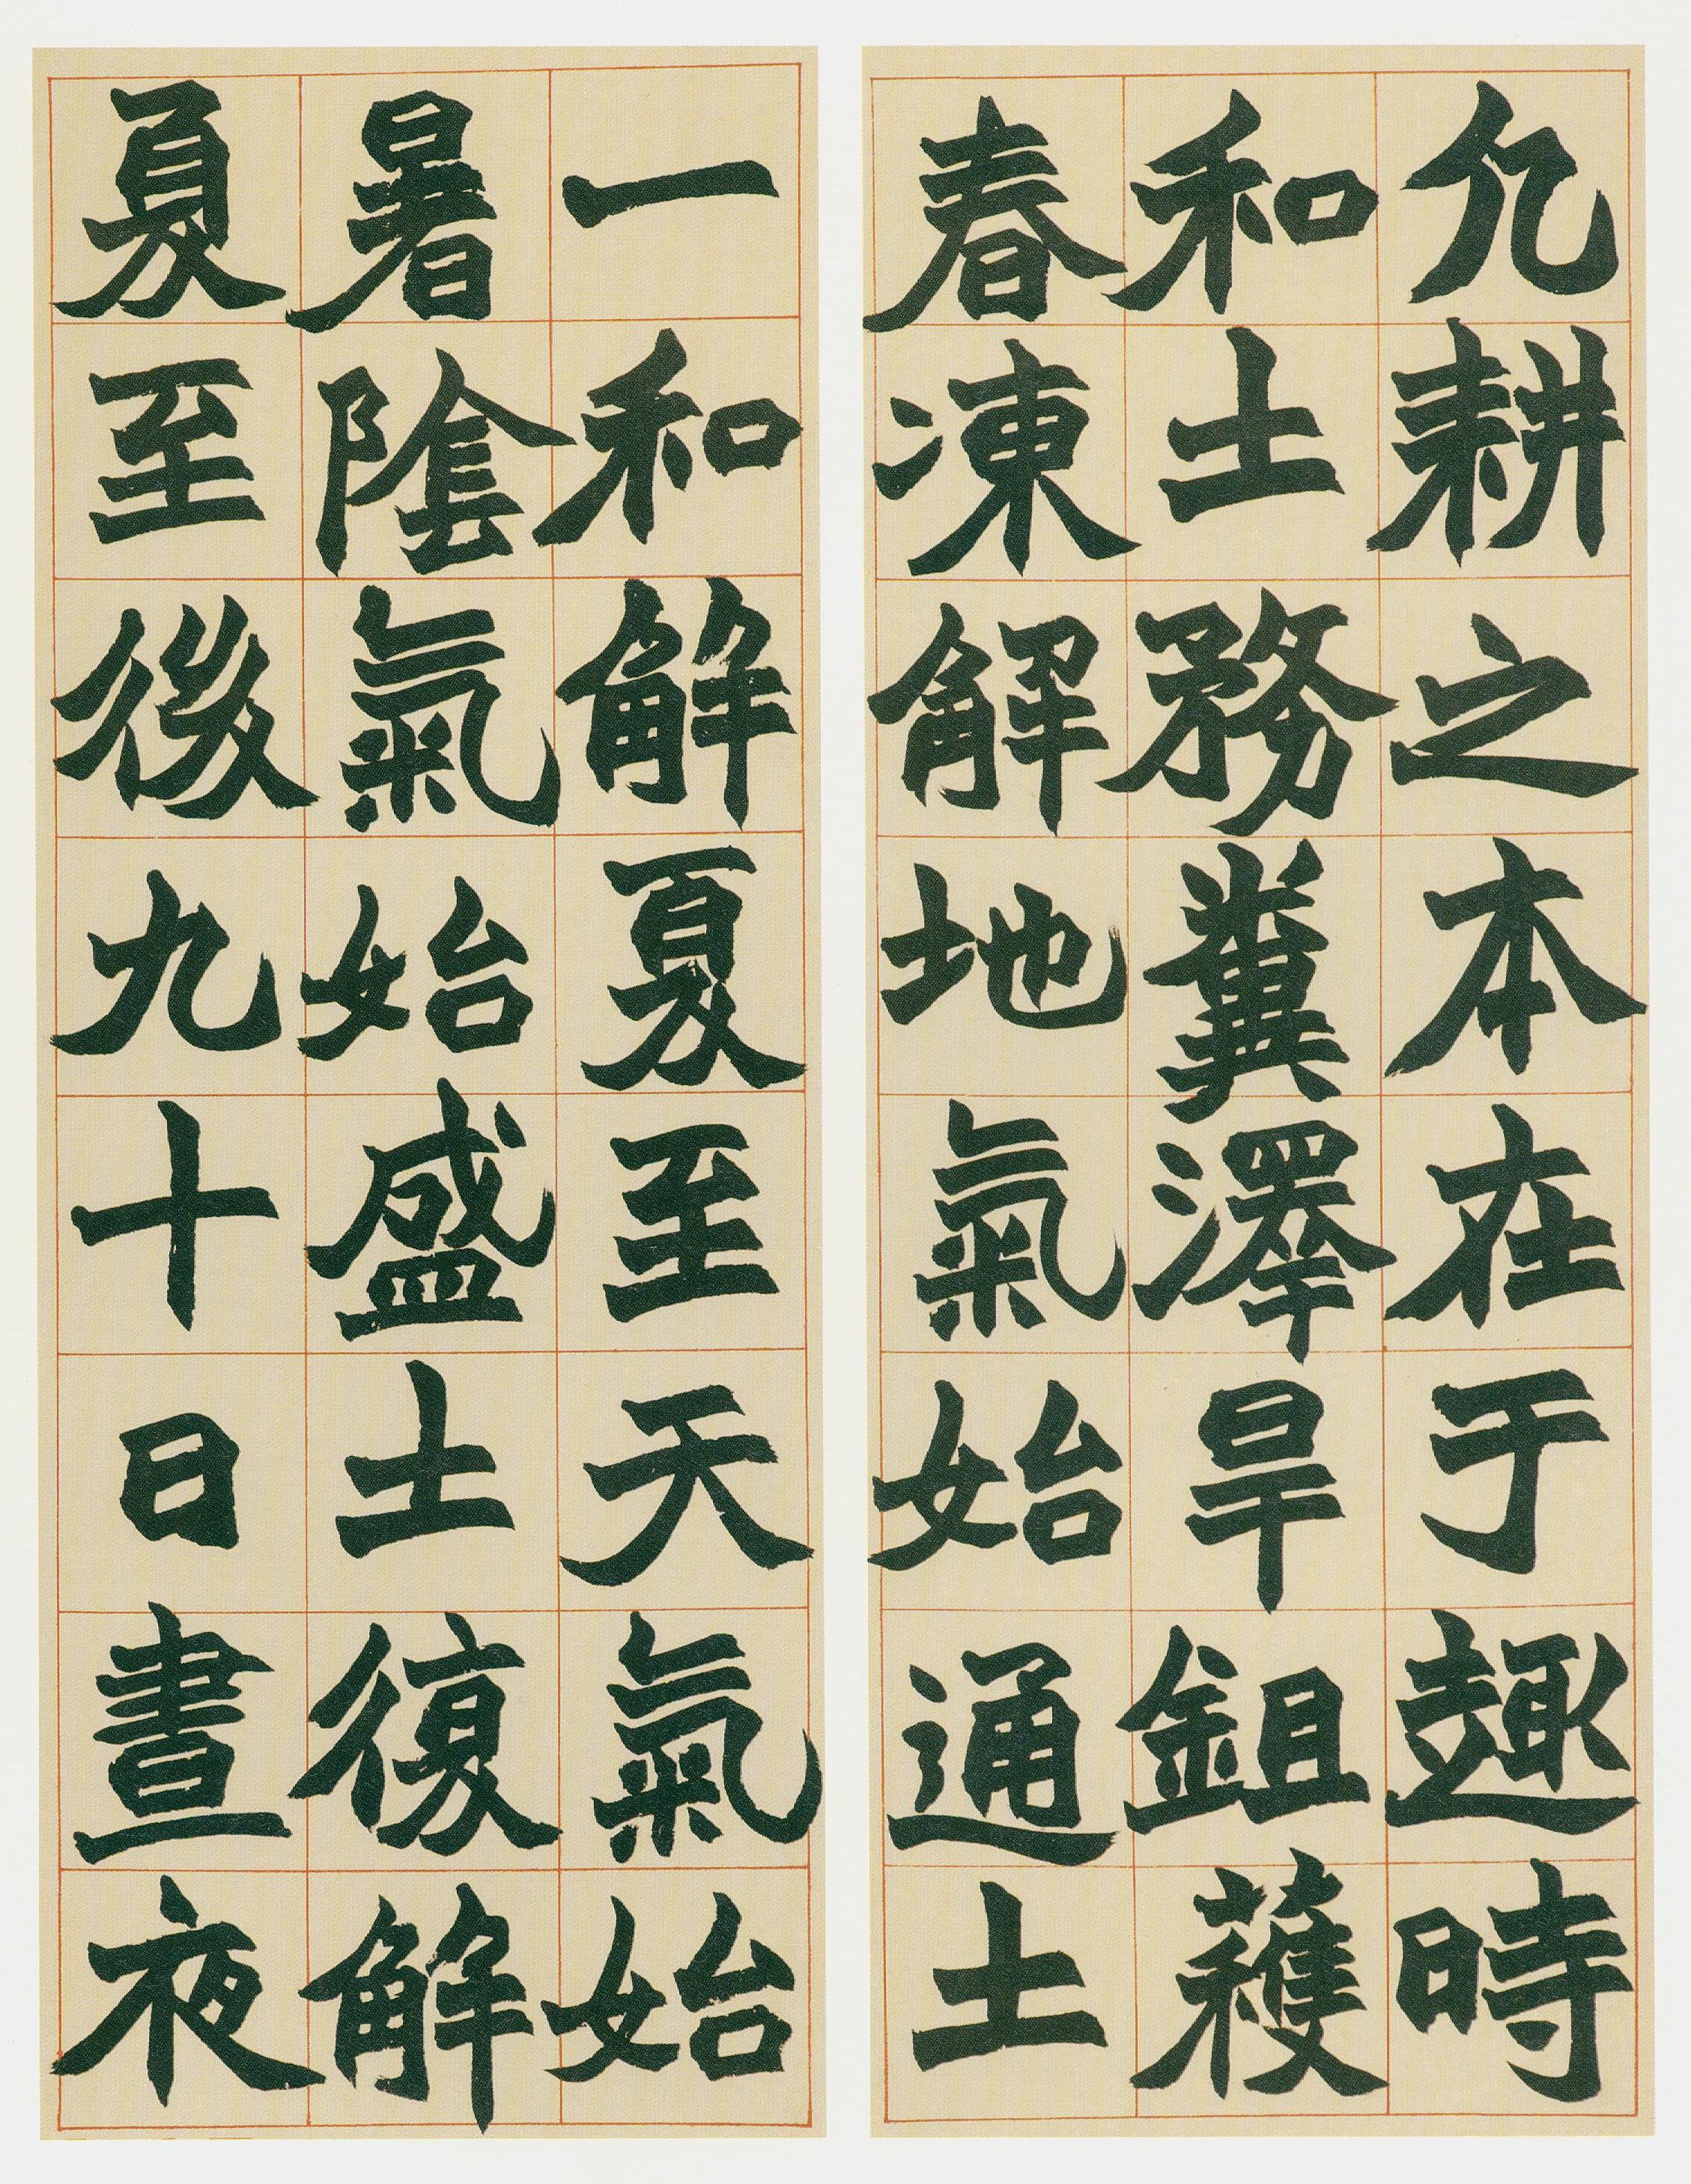 凡耕之本在于趣時
和土務糞澤旱鉏穫
春凍解地氣始通土
一和解夏至天氣始
暑陰氣始盛土復解
夏至後九十日晝夜